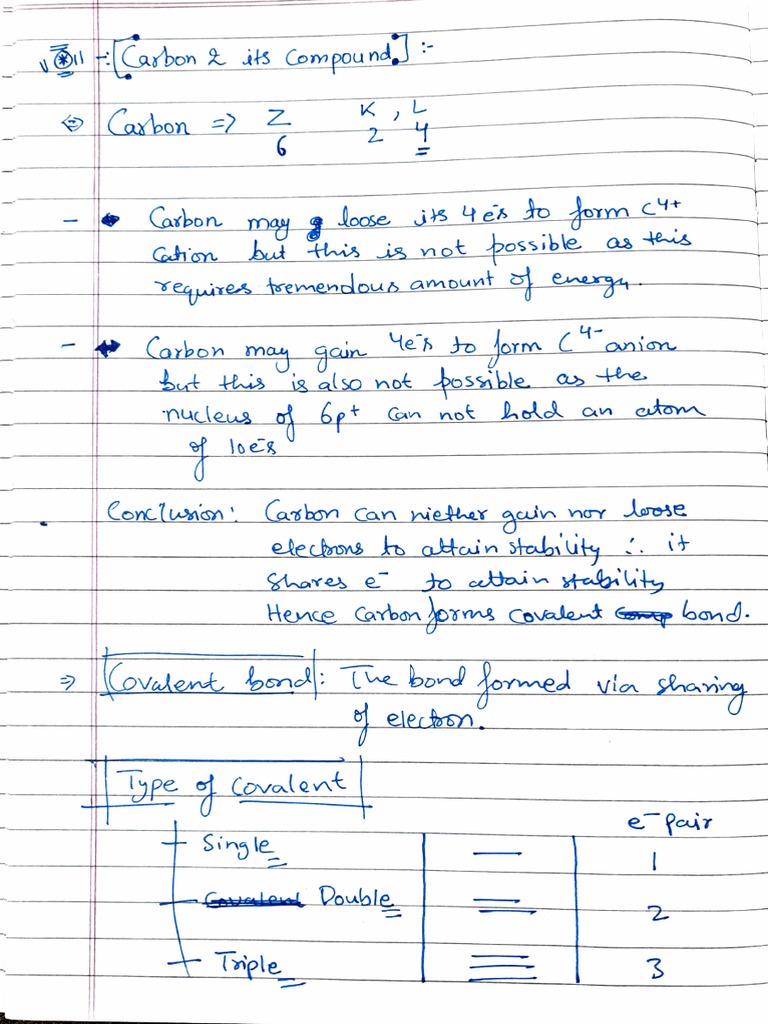 [Carbon & its compound] :-
Carbon => Z K, L
6 2 4
- Carbon may loose its 4e⁻s to form C⁴⁺
cation but this is not possible as this
requires tremendous amount of energy.
- Carbon may gain 4e⁻s to form C⁴⁻ anion
but this is also not possible as the
nucleus of 6p⁺ can not hold an atom
of 10e⁻s
Conclusion: Carbon can niether gain nor loose
electrons to attain stability ∴ it
shares e⁻ to attain stability
Hence Carbon forms covalent bond.
=> Covalent bond: The bond formed via sharing
of electron.
Type of Covalent
e⁻ pair
Single — 1
Double = 2
Triple ≡ 3